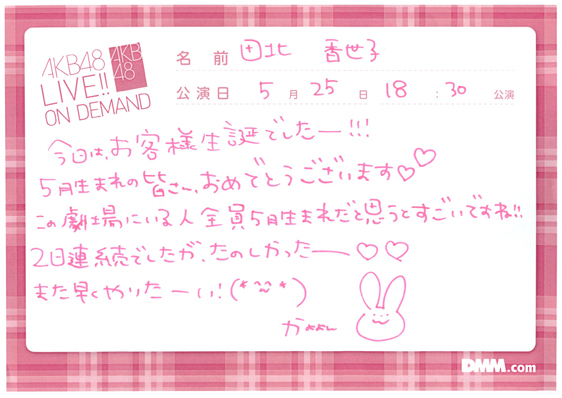 AKB48
LIVE!!
ON DEMAND
AKB
48
名前 田北 香世子
公演日 5月25日 18:30 公演
今日は、お客様生誕でしたー!!!
5月生まれの皆さーん、おめでとうございます♡♡
この劇場にいる人全員5月生まれだと思うとすごいですね!!
2日連続でしたが、たのしかったー♡♡
また早くやりたーい!(*^^*)
DMM.com